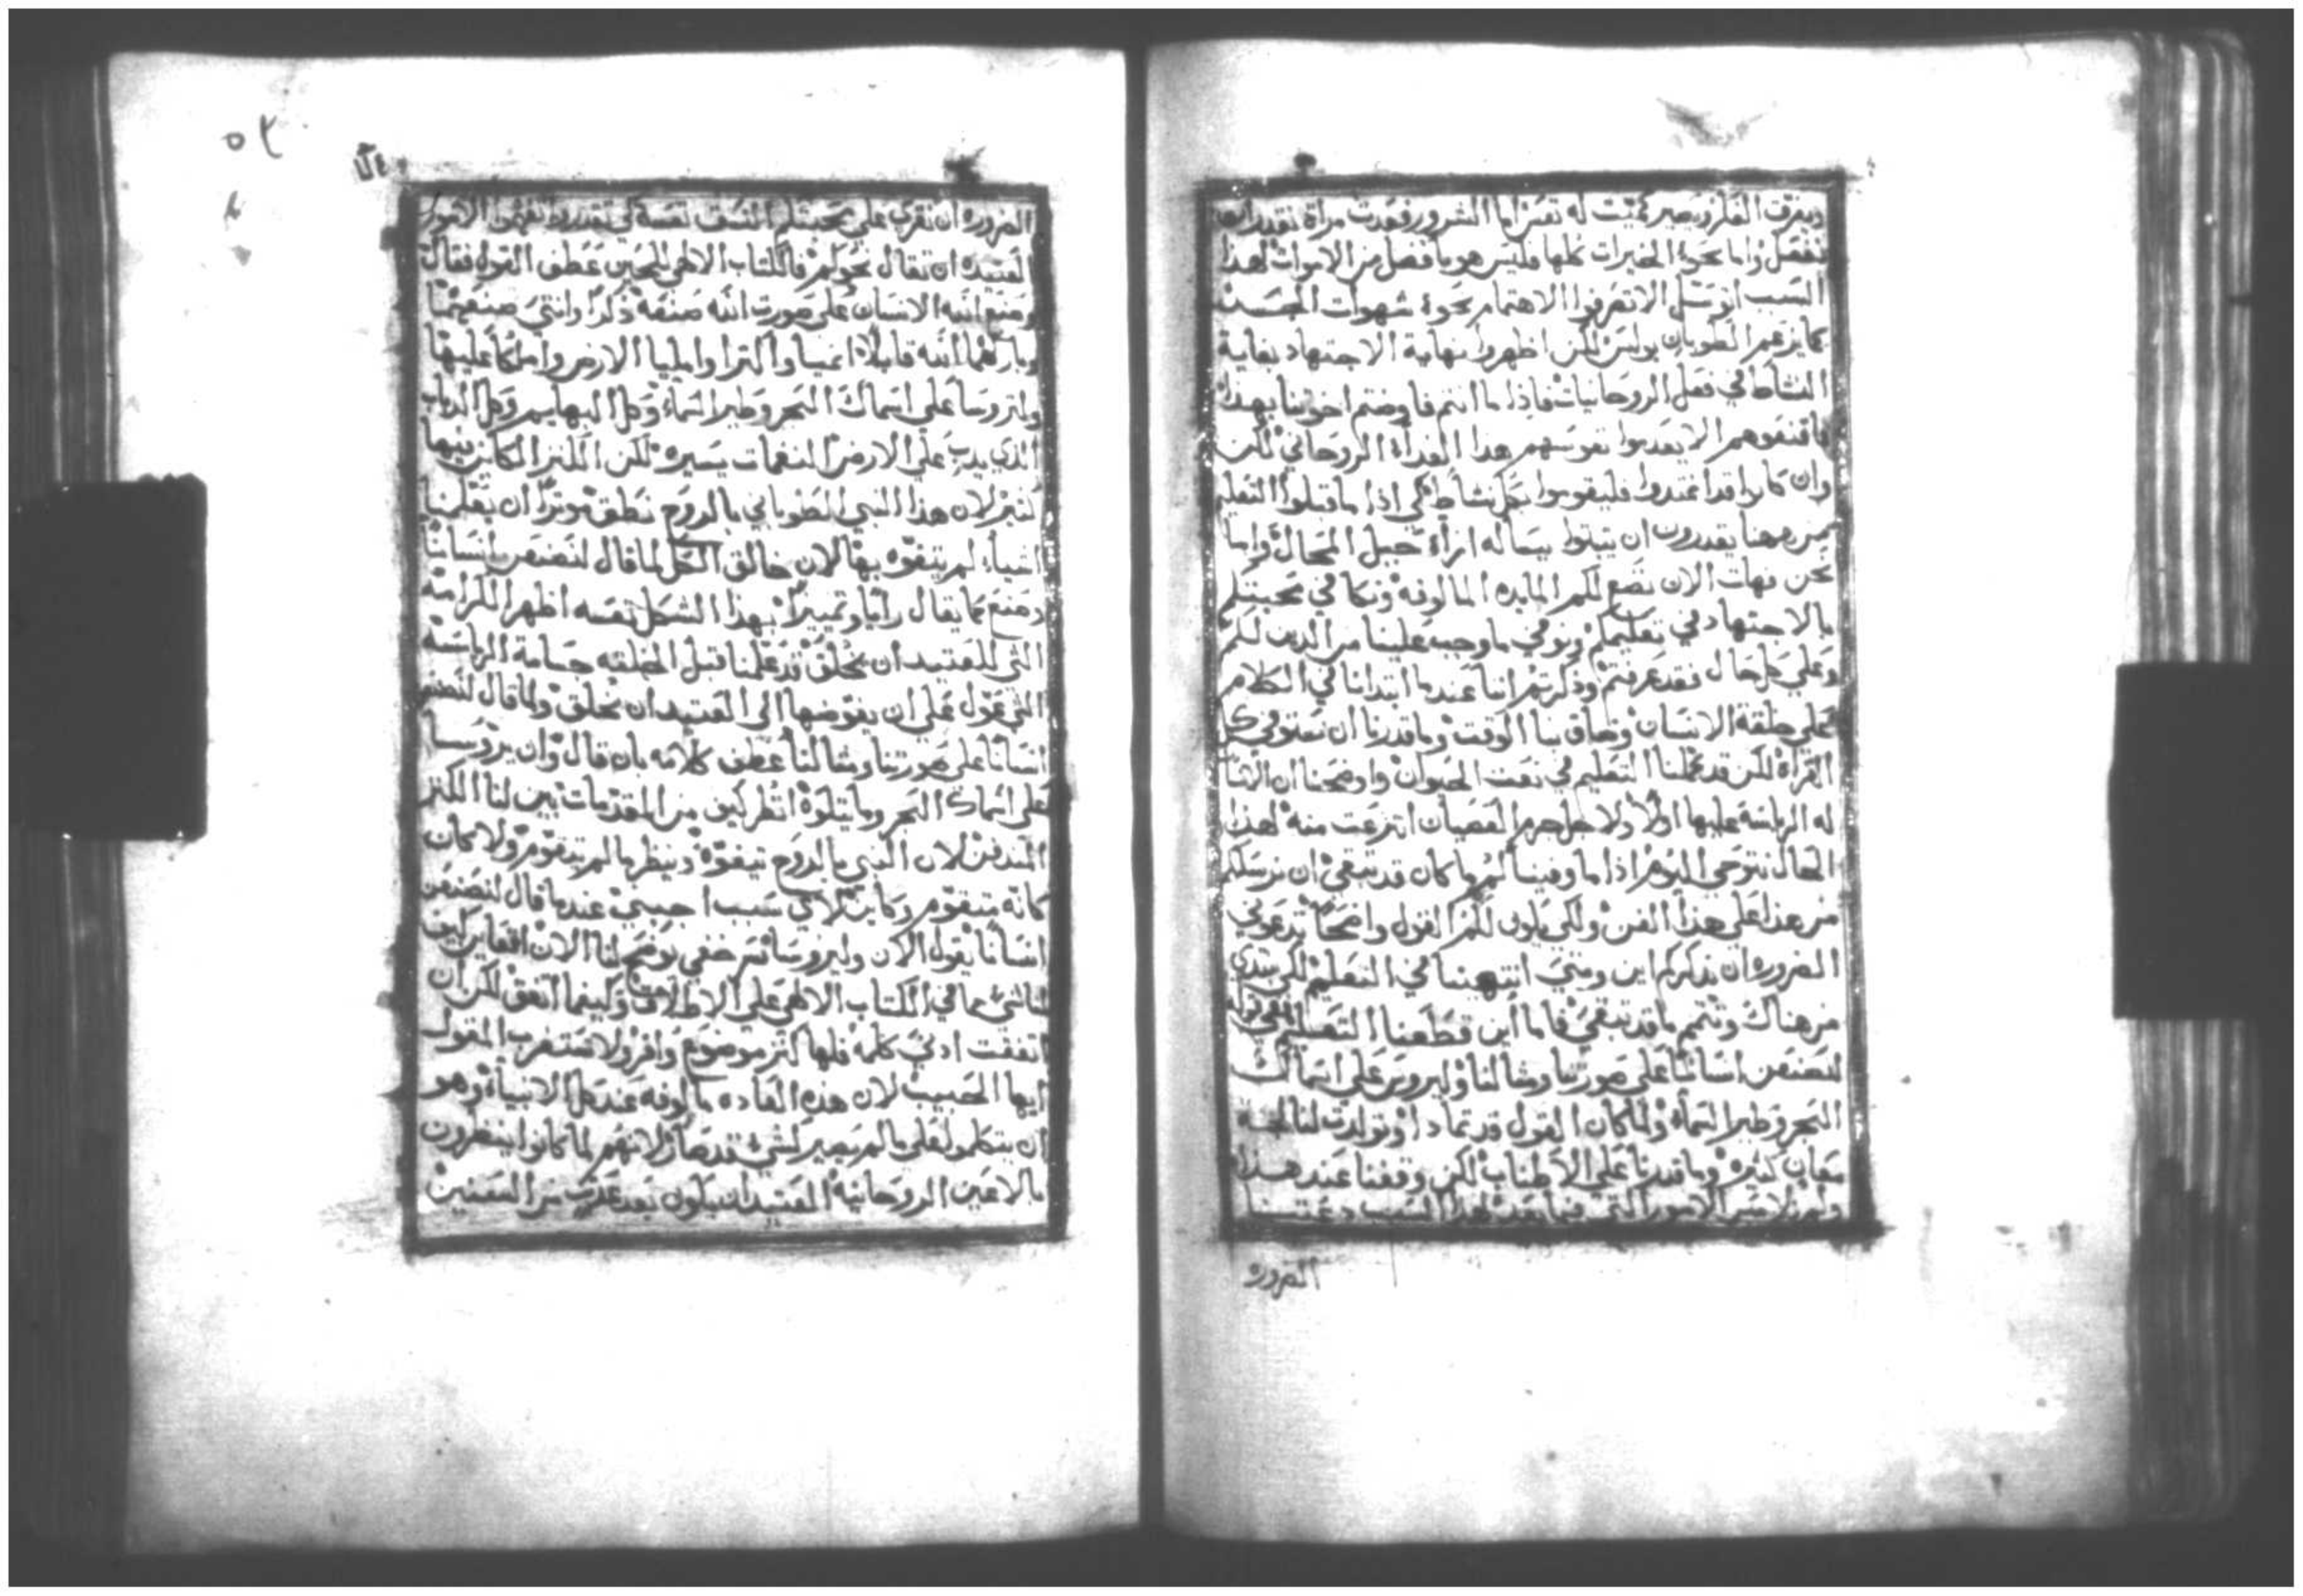 ويغرق الفكر ويصير مميت له تعس اما الشرور فعدت مراة تقدر ان
تفعل واما نحو الخيرات كلها فليس هو بافضل من الاموات لهذا
السبب اتوسل الا تصرفوا الاهتمام نحو شهوات الجسد
كما يزعم الطوبان بولس لكن اظهروا نهاية الاجتهاد بغاية
النشاط في فعل الروحانيات فاذا ما انتم فاوضتم اخوتنا بهذا
فاقنعوهم الا يعدموا نفوسهم هذا الغداة الروحاني لكن
وان كانوا قد اغتدوا فليقوموا بكل نشاط كي اذا ما قبلوا التعليم
من ههنا يقدرون ان يثبتوا ببساله ازاء حيل المحال واما
نحن فهات الان نضع لكم المايده المالوفه ونكافي محبتكم
بالاجتهاد في تعليمكم ونوفي ما وجب علينا من الدين لكم
وعلي كل حال فقد عرفتم وذكرتم اننا عندما ابتدانا في الكلام
علي خلقة الانسان وضاق بنا الوقت وما قدرنا ان نستوفي كل
القراة لكن قد كملنا التعليم في نعت الحيوان واوضحنا ان الله
له الرياسة عليها اولا ولاجل جرم العصيان انتزعت منه لهذا
الحال نتوخي اليوم اذا ما وفينا لكم ما كان قد تبقي ان نرسلكم
من هذا علي هذا الفن ولكي يكون لكم القول واضحا تدعوني
الضروره ان نذكركم اين ومتي انتهينا في التعليم لكي نبتدي
من هناك ونتمم ما قد تبقي فاما اين قطعنا التعليم ففي قوله
لنصنعن انسانا علي صورتنا ومثالنا وليروس علي اسماك
البحر وطير السماء ولما كان القول قد تمادا وتولدت لنا لجة
معان كثيره وما قدرنا علي الاطناب لكن وقفنا عند هذا
ولم نلامس الامور التي فيما بعد لهذا السبب دعتنا
الضروره
الضروره ان نقري علي محبتكم النسق نفسه كي تقدروا تفهموا الامور
العتيده ان تقال نحوكم فالكتاب الالهي للحين عطف القول فقال
وصنع الله الانسان علي صورت الله صنعه ذكرا وانتي صنعهما
وباركهما الله قايلا انميا واكثرا وامليا الارض واملكا عليها
ولتروسا علي اسماك البحر وطير السماء وكل البهايم وكل الدباب
الذي يدب علي الارض النغمات يسيره لكن الكنز الكاين فيها
كثير لان هذا النبي الطوباني بالروح نطق موثرا ان يعلمنا
اشياء لم يتفوه بها لان خالق الكل لما قال لنصنعن انسانا
وصنع كما يقال رايا وتمييزا بهذا الشكل نفسه اظهر الكرامه
التي للعتيد ان يخلق قد علمنا قبل الخلقه جسامة الرياسة
التي عول علي ان يفوضها الي العتيد ان يخلق ولما قال لنصنع
انسانا علي صورتنا ومثالنا عطف كلامه بان قال وان يروسا
علي اسماك البحر وما يتلوه انظر كيف من المقدمات بين لنا الكنز
المندفن لان النبي بالروح تيفوه وينظر ما لم يتقوم ولا كان
كانه متقوم وكاين لاي سبب اجيبني عندما قال لنصنعن
انسانا يقول الان وليروسا سر خفي يوضح لنا الان
ما في الكتاب الالهي علي الاطلاق وكيفما اتفق لكن ان
اتفقت ادني كلمه فلها كنز موضوع وافر ولا تستغرب المقول
ايها الحبيب لان هذه العاده مالوفه عند كل الانبياء وهو
ان يتكلموا علي ما لم يصير كشئ قد صار لانهم لما كانوا ينظرون
بالاعين الروحانيه العتيد ان يكون بعد عدت من السنين